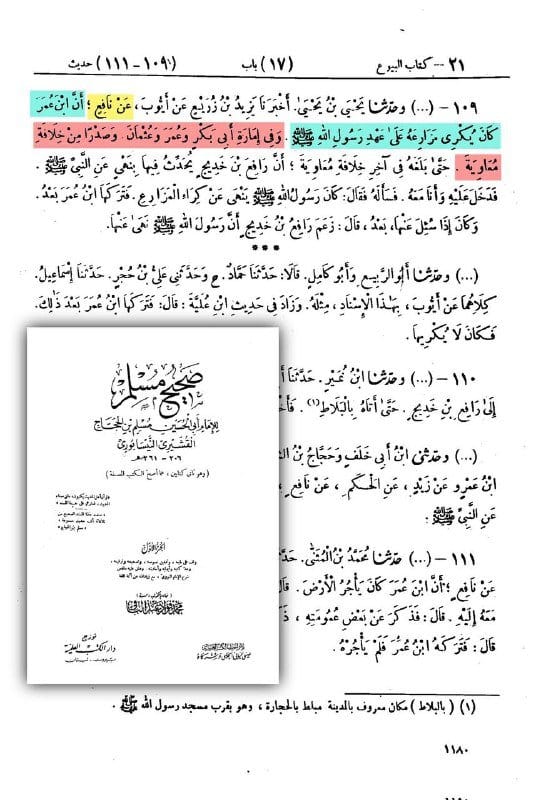 ٢١ — كتاب البيوع (١٧) باب (١٠٩ - ١١١) حديث
١٠٩ - (...) وحَدَّثَنَا يَحْيَى بْنُ يَحْيَى. أَخْبَرَنَا يَزِيدُ بْنُ زُرَيْعٍ عَنْ أَيُّوبَ، عَنْ نَافِعٍ؛ أَنَّ ابْنَ عُمَرَ
كَانَ يُكْرِي مَزَارِعَهُ عَلَىٰ عَهْدِ رَسُولِ اللهِ ﷺ. وَفِي إِمَارَةِ أَبِي بَكْرٍ وَعُمَرَ وَعُثْمَانَ. وَصَدْرًا مِنْ خِلَافَةِ
مُعَاوِيَةَ. حَتَّىٰ بَلَغَهُ فِي آخِرِ خِلَافَةِ مُعَاوِيَةَ؛ أَنَّ رَافِعَ بْنَ خَدِيجٍ يُحَدِّثُ فِيهَا بِنَهْيٍ عَنِ النَّبِيِّ ﷺ.
فَدَخَلَ عَلَيْهِ وَأَنَا مَعَهُ. فَسَأَلَهُ فَقَالَ: كَانَ رَسُولُ اللهِ ﷺ يَنْهَىٰ عَنْ كِرَاءِ الْمَزَارِعِ. فَتَرَكَهَا ابْنُ عُمَرَ بَعْدُ.
وَكَانَ إِذَا سُئِلَ عَنْهَا، بَعْدُ، قَالَ: زَعَمَ رَافِعُ بْنُ خَدِيجٍ أَنَّ رَسُولَ اللهِ ﷺ نَهَىٰ عَنْهَا.
***
(...) وحَدَّثَنَا أَبُو الرَّبِيعِ وَأَبُو كَامِلٍ. قَالَا: حَدَّثَنَا حَمَّادٌ. ح وَحَدَّثَنِي عَلِيُّ بْنُ حُجْرٍ. حَدَّثَنَا إِسْمَاعِيلُ.
كِلَاهُمَا عَنْ أَيُّوبَ، بِهَـٰذَا الْإِسْنَادِ، مِثْلَهُ. وَزَادَ فِي حَدِيثِ ابْنِ عُلَيَّةَ: قَالَ: فَتَرَكَهَا ابْنُ عُمَرَ بَعْدَ ذَٰلِكَ.
فَكَانَ لَا يُكْرِيهَا.
١١٠ - (...) وحَدَّثَنَا ابْنُ نُمَيْرٍ. حَدَّثَنَا
إِلَىٰ رَافِعِ بْنِ خَدِيجٍ. حَتَّىٰ أَتَاهُ بِالْبَلَاطِ (١).
(...) وحَدَّثَنِي ابْنُ أَبِي خَلَفٍ وَحَجَّاجُ بْنُ
ابْنُ عَمْرٍو عَنْ زَيْدٍ، عَنِ الْحَكَمِ، عَنْ نَافِعٍ
عَنِ النَّبِيِّ ﷺ:
١١١ - (...) حَدَّثَنَا مُحَمَّدُ بْنُ الْمُثَنَّىٰ.
عَنْ نَافِعٍ؛ أَنَّ ابْنَ عُمَرَ كَانَ يَأْجُرُ الْأَرْضَ.
مَعَهُ إِلَيْهِ. قَالَ: فَذَكَرَ عَنْ بَعْضِ عُمُومَتِهِ،
قَالَ: فَتَرَكَهُ ابْنُ عُمَرَ فَلَمْ يَأْجُرْهُ.
(١) (بالبلاط) مكان معروف بالمدينة مبلط بالحجارة، وهو بقرب مسجد رسول الله ﷺ.
١١٨٠
صحيح مسلم
للإمام أبي الحسين مسلم بن الحجاج
القشيري النيسابوري
٢٠٦ - ٢٦١ هـ
(وهو ثاني كتابين، هما أصح الكتب المصنفة)
الجزء الأول
محمد فؤاد عبد الباقي
توزيع
دار الكتب العلمية
بيروت - لبنان